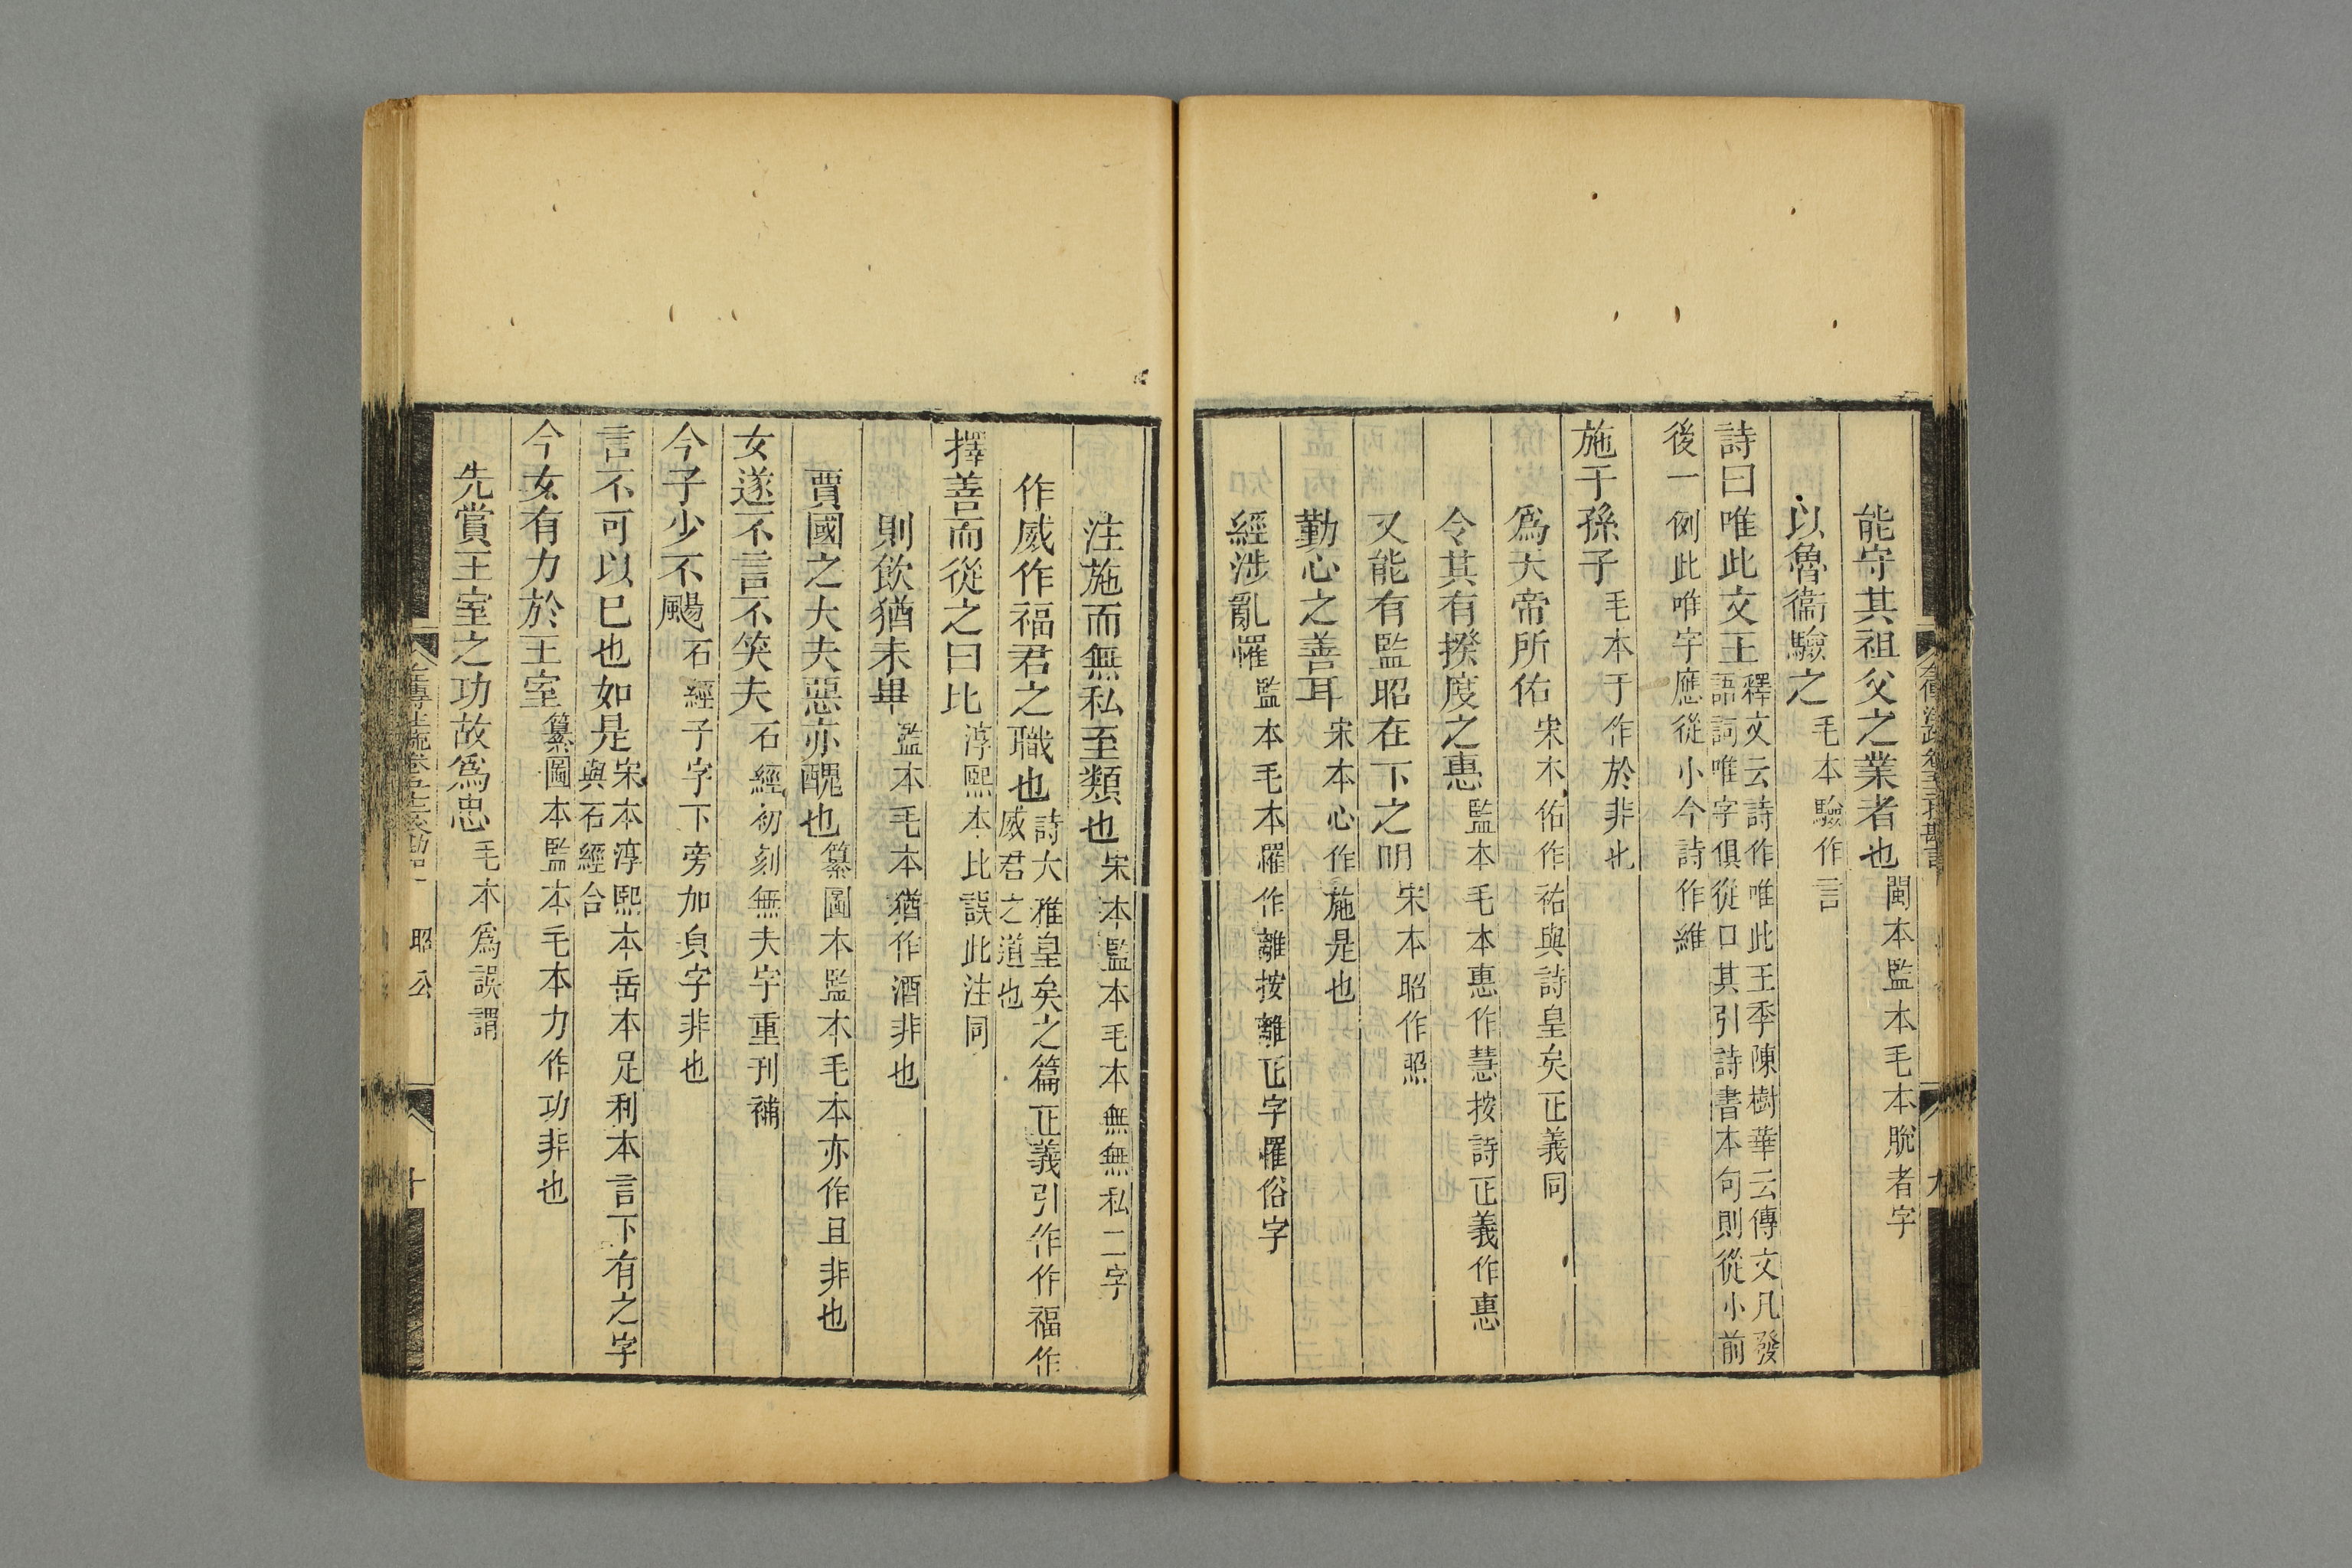 能守其祖父之業者也閩本監本毛本脫者字
以魯衞驗之毛本驗作言
詩曰唯此文王釋文云詩作唯此王季陳樹華云傳文凡發
語詞唯字俱從口其引詩書本句則從小前
後一例此唯字應從小今詩作維
施于孫子毛本于作於非也
爲天帝所佑宋本佑作祐與詩皇矣正義同
令其有揆度之惠監本毛本惠作慧按詩正義作惠
又能有監昭在下之明宋本昭作照
勤心之善耳宋本心作施是也
經涉亂罹監本毛本罹作離按離正字罹俗字
九
注施而無私至類也宋本監本毛本無無私二字
作威作福君之職也詩大雅皇矣之篇正義引作作福作
威君之道也
擇善而從之曰比淳熙本比誤此注同
則飲猶未畢監本毛本猶作酒非也
賈國之大夫惡亦醜也纂圖本監本毛本亦作且非也
女遂不言不笑夫石經初刻無夫字重刊補
今子少不颺石經子字下旁加貟字非也
言不可以巳也如是宋本淳熙本岳本足利本言下有之字
與石經合
今女有力於王室纂圖本監本毛本力作功非也
先賞王室之功故爲忠毛本爲誤謂
昭公
十